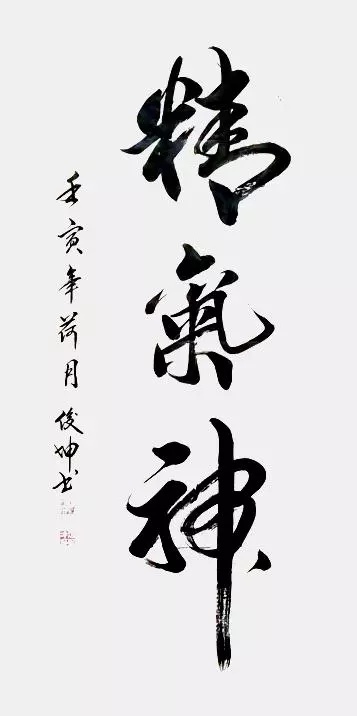 精氣神
壬寅年荷月俊坤书